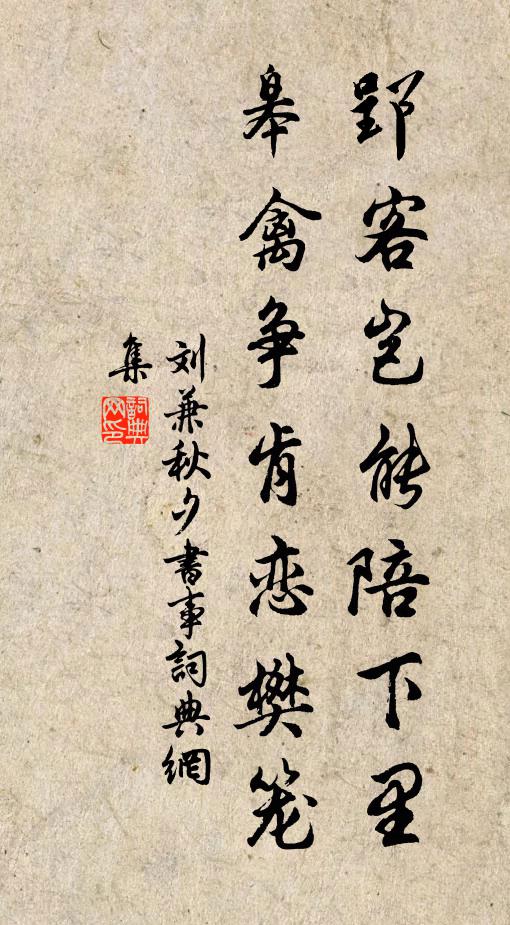 郢客岂能陪下里
皋禽争肯恋樊笼
刘兼秋夕书事詞典網
集
詞典
网印